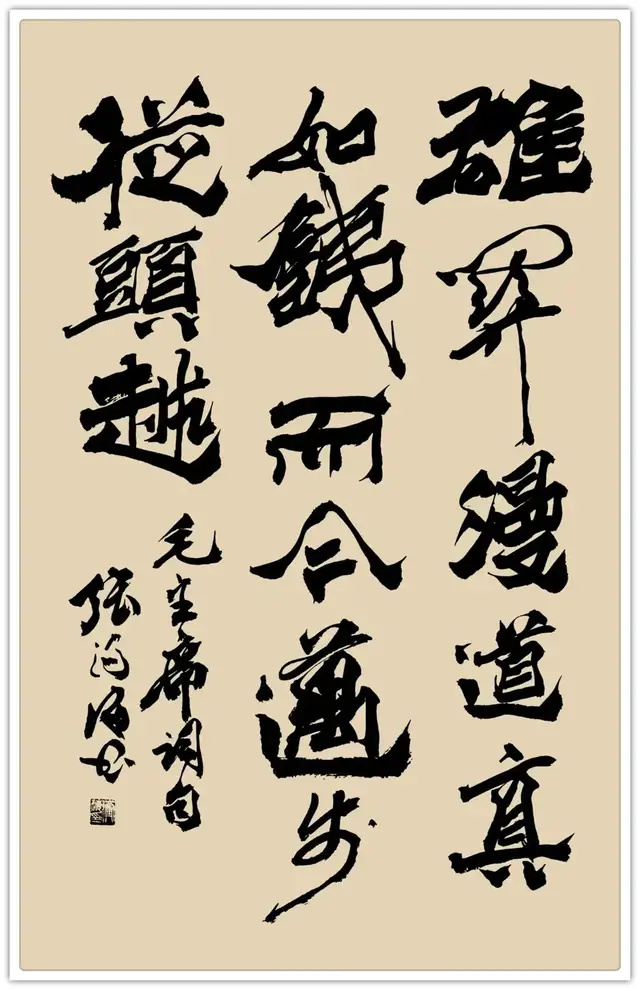 雄關漫道真
如鐵而今邁步
從頭越
毛主席詞句
張海书